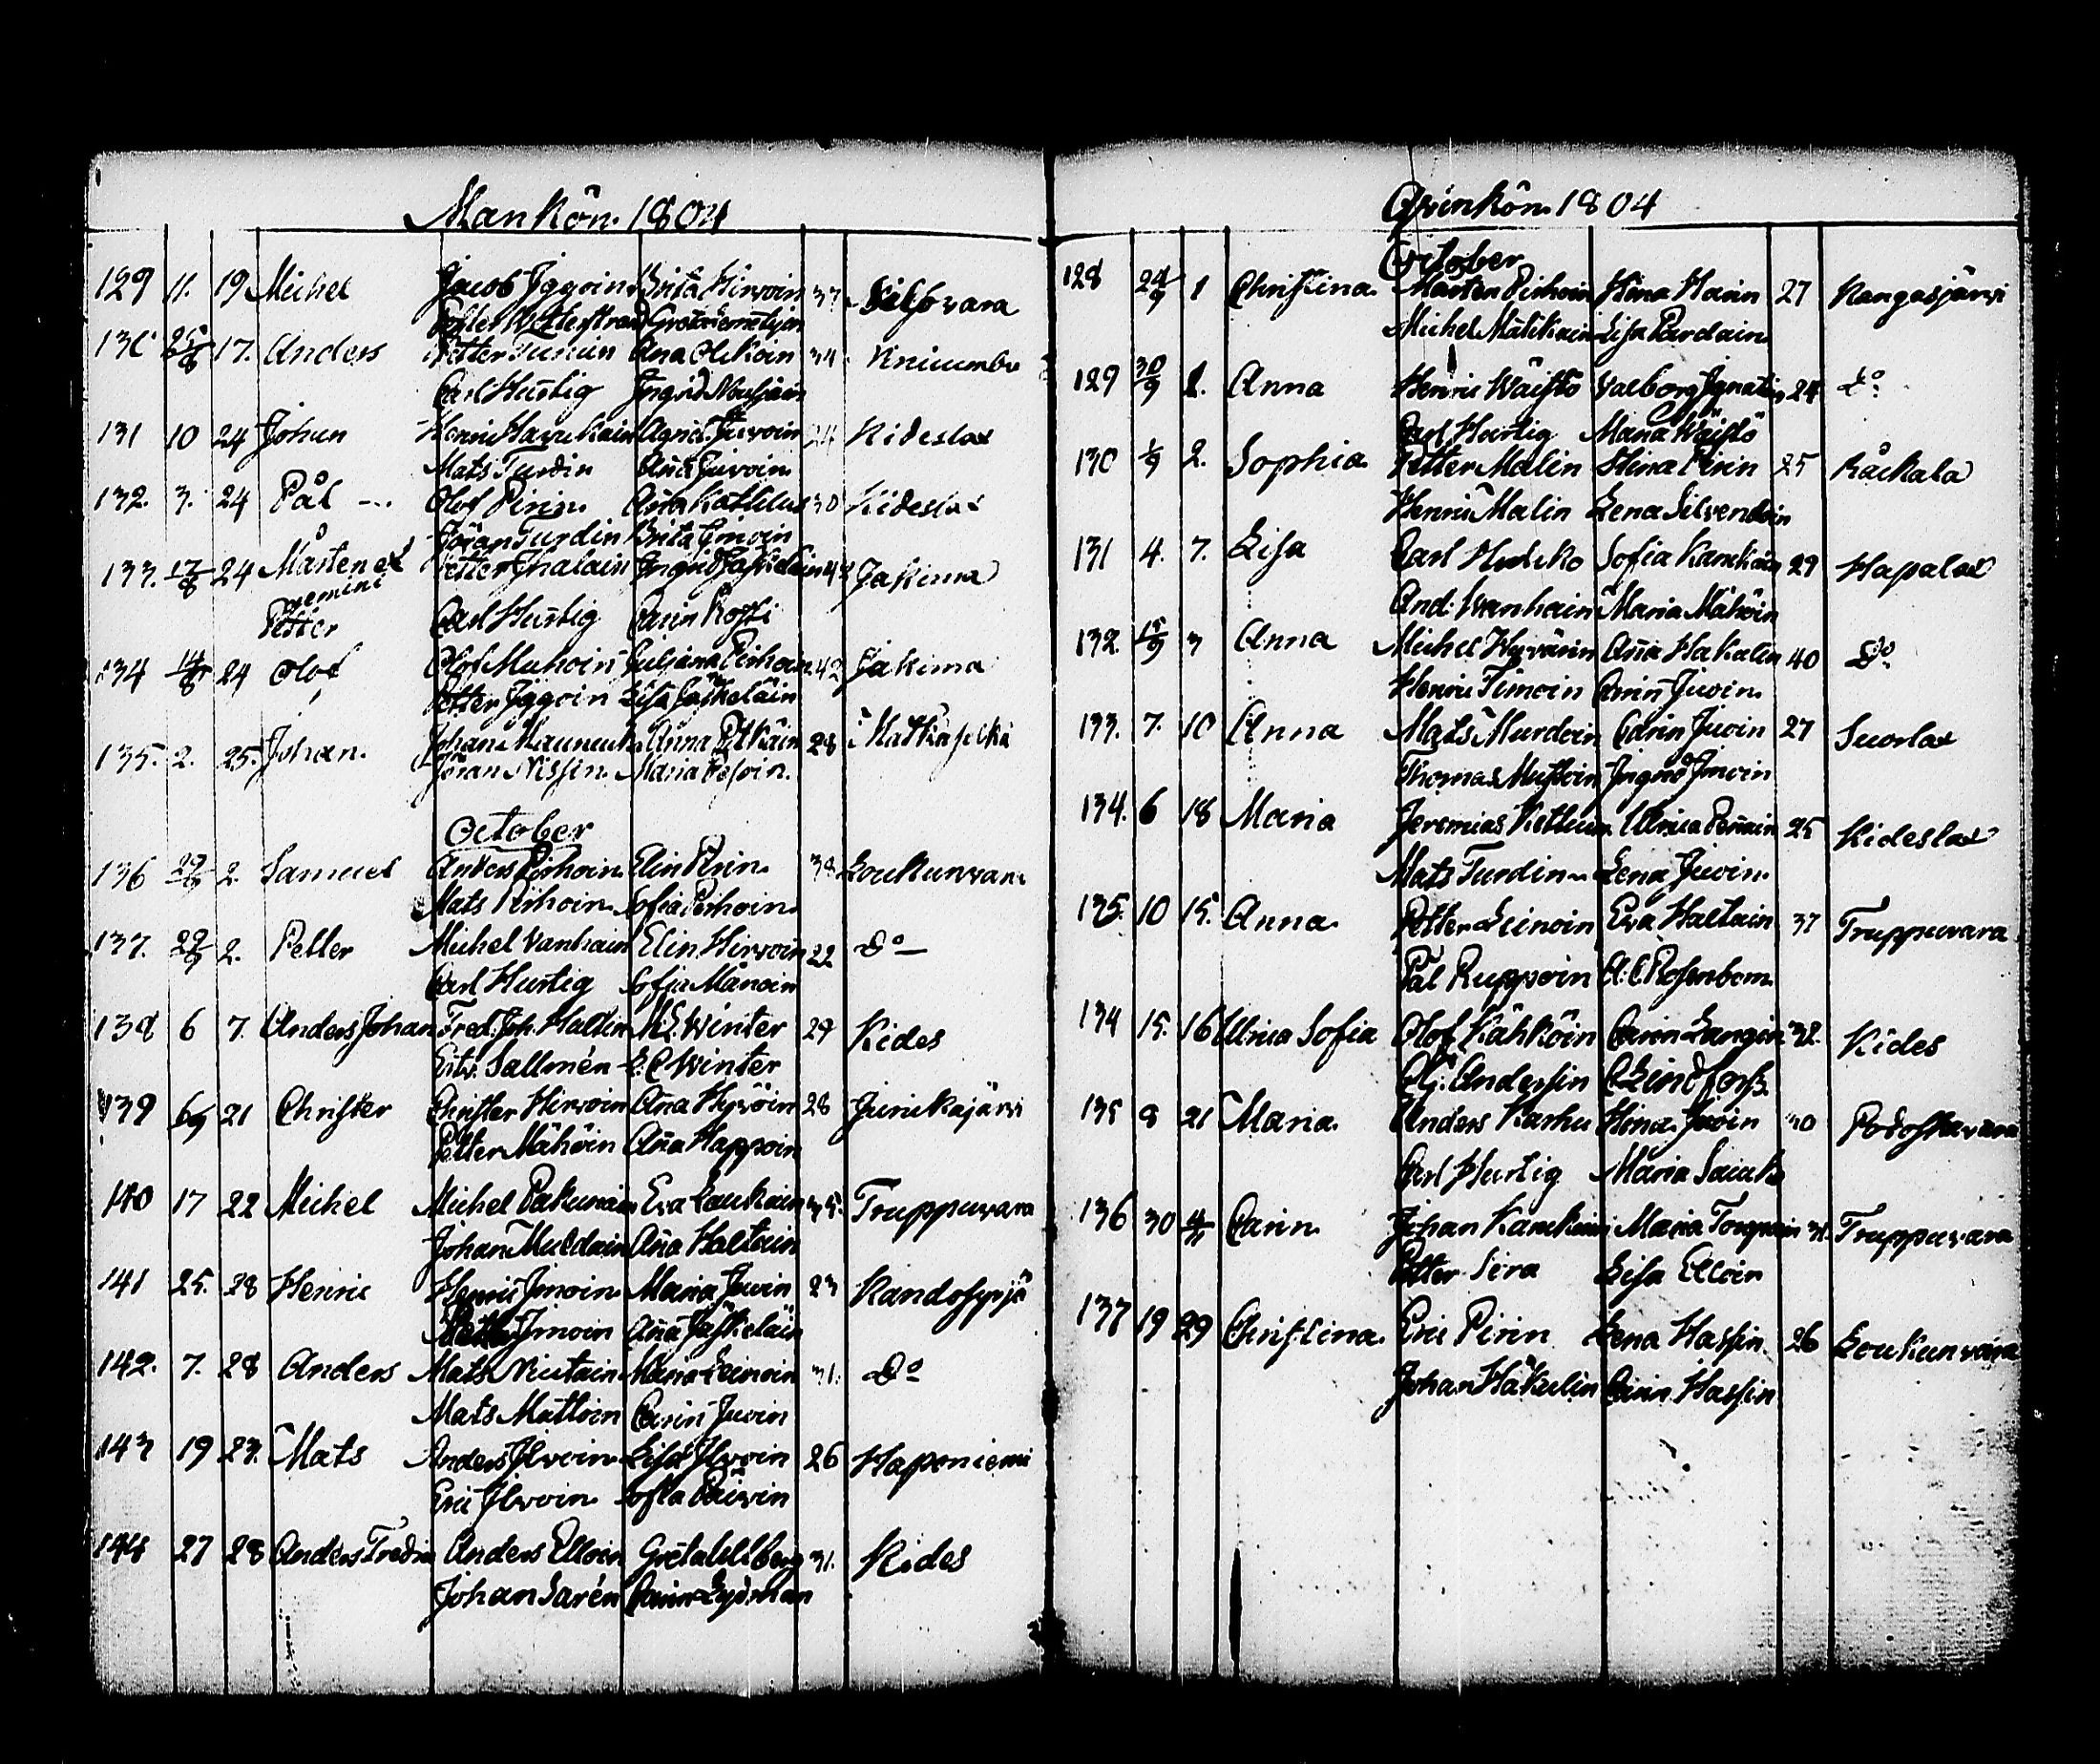 Mankön. 1804
129 11. 19 Michel Jacob Iggoin Brita Hirvoin 37 Silfwara
130 25/8 17. Anders Petter Turuin Ana Olikoin 34
Carl Hurtig Ingrid
131 10 24 Johan Henric Agnes Juvoin 24 Kideslax
Mats Turdin Aña Juvoin
132. 3. 24 Pål --- Olof Pirin. 30 Kideslax
Jöran Turdin Brita Imoin
133. 17/8 24 Mårten et Petter Ihalain Ingrid Jaskelain 43 Jakima
gemini
Petter Carl Hurtig Carin Kosti
134 14/8 24 Olof Olof Muhoin Juliana Pirhoin 42 Jakima
Petter Iggoin Lisa Jaskeläin
135. 2. 25. Johan. Johan Anna Pitkäin 28 Matkaselkä
Jöran Nissin. Maria Pesoin.
October
136 29/9 2. Samuel Anders Pirhoin. Elin Pirin. 38 Loukunvara
Mats Pirhoin. Sofia Pirhoin.
137. 29/9 2. Petter Michel Vanhain Elin Hirvoin 22 Do
Carl Hurtig Sofia Mänoin
138 6 7. Anders Johan Fred. Joh. Haltin Winter 29 Kides
Sallmén E. C Winter
139 6/9 21 Christer Christer Hirvoin Aña Hyvöin 28 Juurikajärvi
Petter Mähöin Aña Happoin
140 17 22 Michel Michel Pakurain Eva Loukain 35. Truppuvara
Johan Muldain Aña Haltain
141 25. 28 Henric Henric Imoin Maria Juvin 23 Kandosyrjä
Imoin Aña Jaskeläin
142. 7. 28 Anders Mats Niutain Maria Leinoin 31. Do
Mats Mattoin Carin Juvin
143 19 23. Mats Anders Ilvoin. Lisa Ilvoin 26 Haponiemi
Eric Ilvoin. Sofia Päivin
144 27 28 Anders Fredric Anders Elloin Greta Uhlberg 31. Kides
Johan Sarén Carin Ljöman
Qvinkön. 1804
October
128 24/9 1 Christina. Mårten Pirhoin Stina Harin 27 Kangasjärvi
Michel Mätikain Lisa Pardain
129 30/9 1. Anna Henric Wäistö Valborg Ignatius 24 Do
Carl Hurtig Maria Wäistö
130 1/9 2. Sophia. Petter Malin Stina Pirin 25 Råckala
Henric Malin Lena Silvendoin
131 4. 7. Lisa Carl Sofia 29 Hapalax
And: Vanhain Maria Mähöin
132. 15/9 3 Anna Michel Hyvärin Aña Hakulin 40 Do
Henric Timoin Carin Juvin.
133. 7. 10 Anna Mats Murdoin Carin Juvin 27 Suorlax
Thomas Mustoin Ingrid Imoin
134. 6 18 Maria Jeremias Kettuin. Ulrica 25 Kideslax
Mats Turdin Lena Juvin.
135. 10 15. Anna. Petter Leinoin Eva Haltain 37 Truppuvara
Pål Ruppoin Rosenbom.
134 15. 16 Ulrica Sofia Olof Kähköin Carin Langin 32. Kides
Anderssin C Lindforss.
135 8 21 Maria. Anders Karhu Stina Juvin 30
Carl Hurtig Maria
136 30 4/11 Carin. Johan Maria 31. Truppuvara
Petter Sira Lisa Elloin
137 19 29 Christina. Eric Pirin Lena Hassin. 26 Loukunvara
Johan Hakulin Carin Hassin